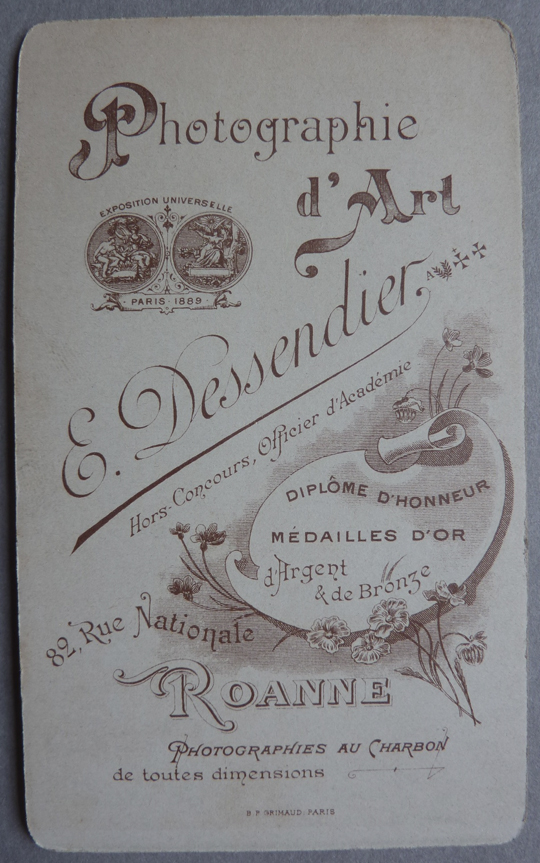 Photographie
d'Art
EXPOSITION UNIVERSELLE
PARIS 1889
E. Dessendier
A
Hors-Concours, Officier d'Académie
DIPLÔME D'HONNEUR
MÉDAILLES D'OR
d'Argent
& de Bronze
82, Rue Nationale
ROANNE
PHOTOGRAPHIES AU CHARBON
de toutes dimensions
B. P. GRIMAUD. PARIS